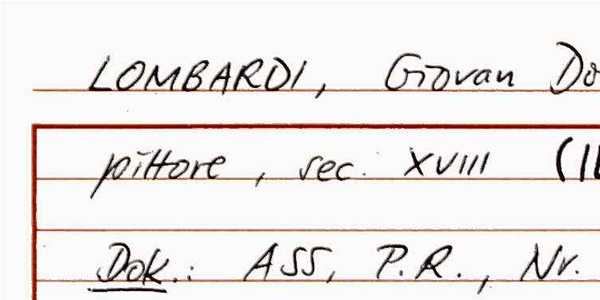 LOMBARDI, Giovan Do
pittore, sec. XVIII (1
Dok.: ASS, P.R., Nr.